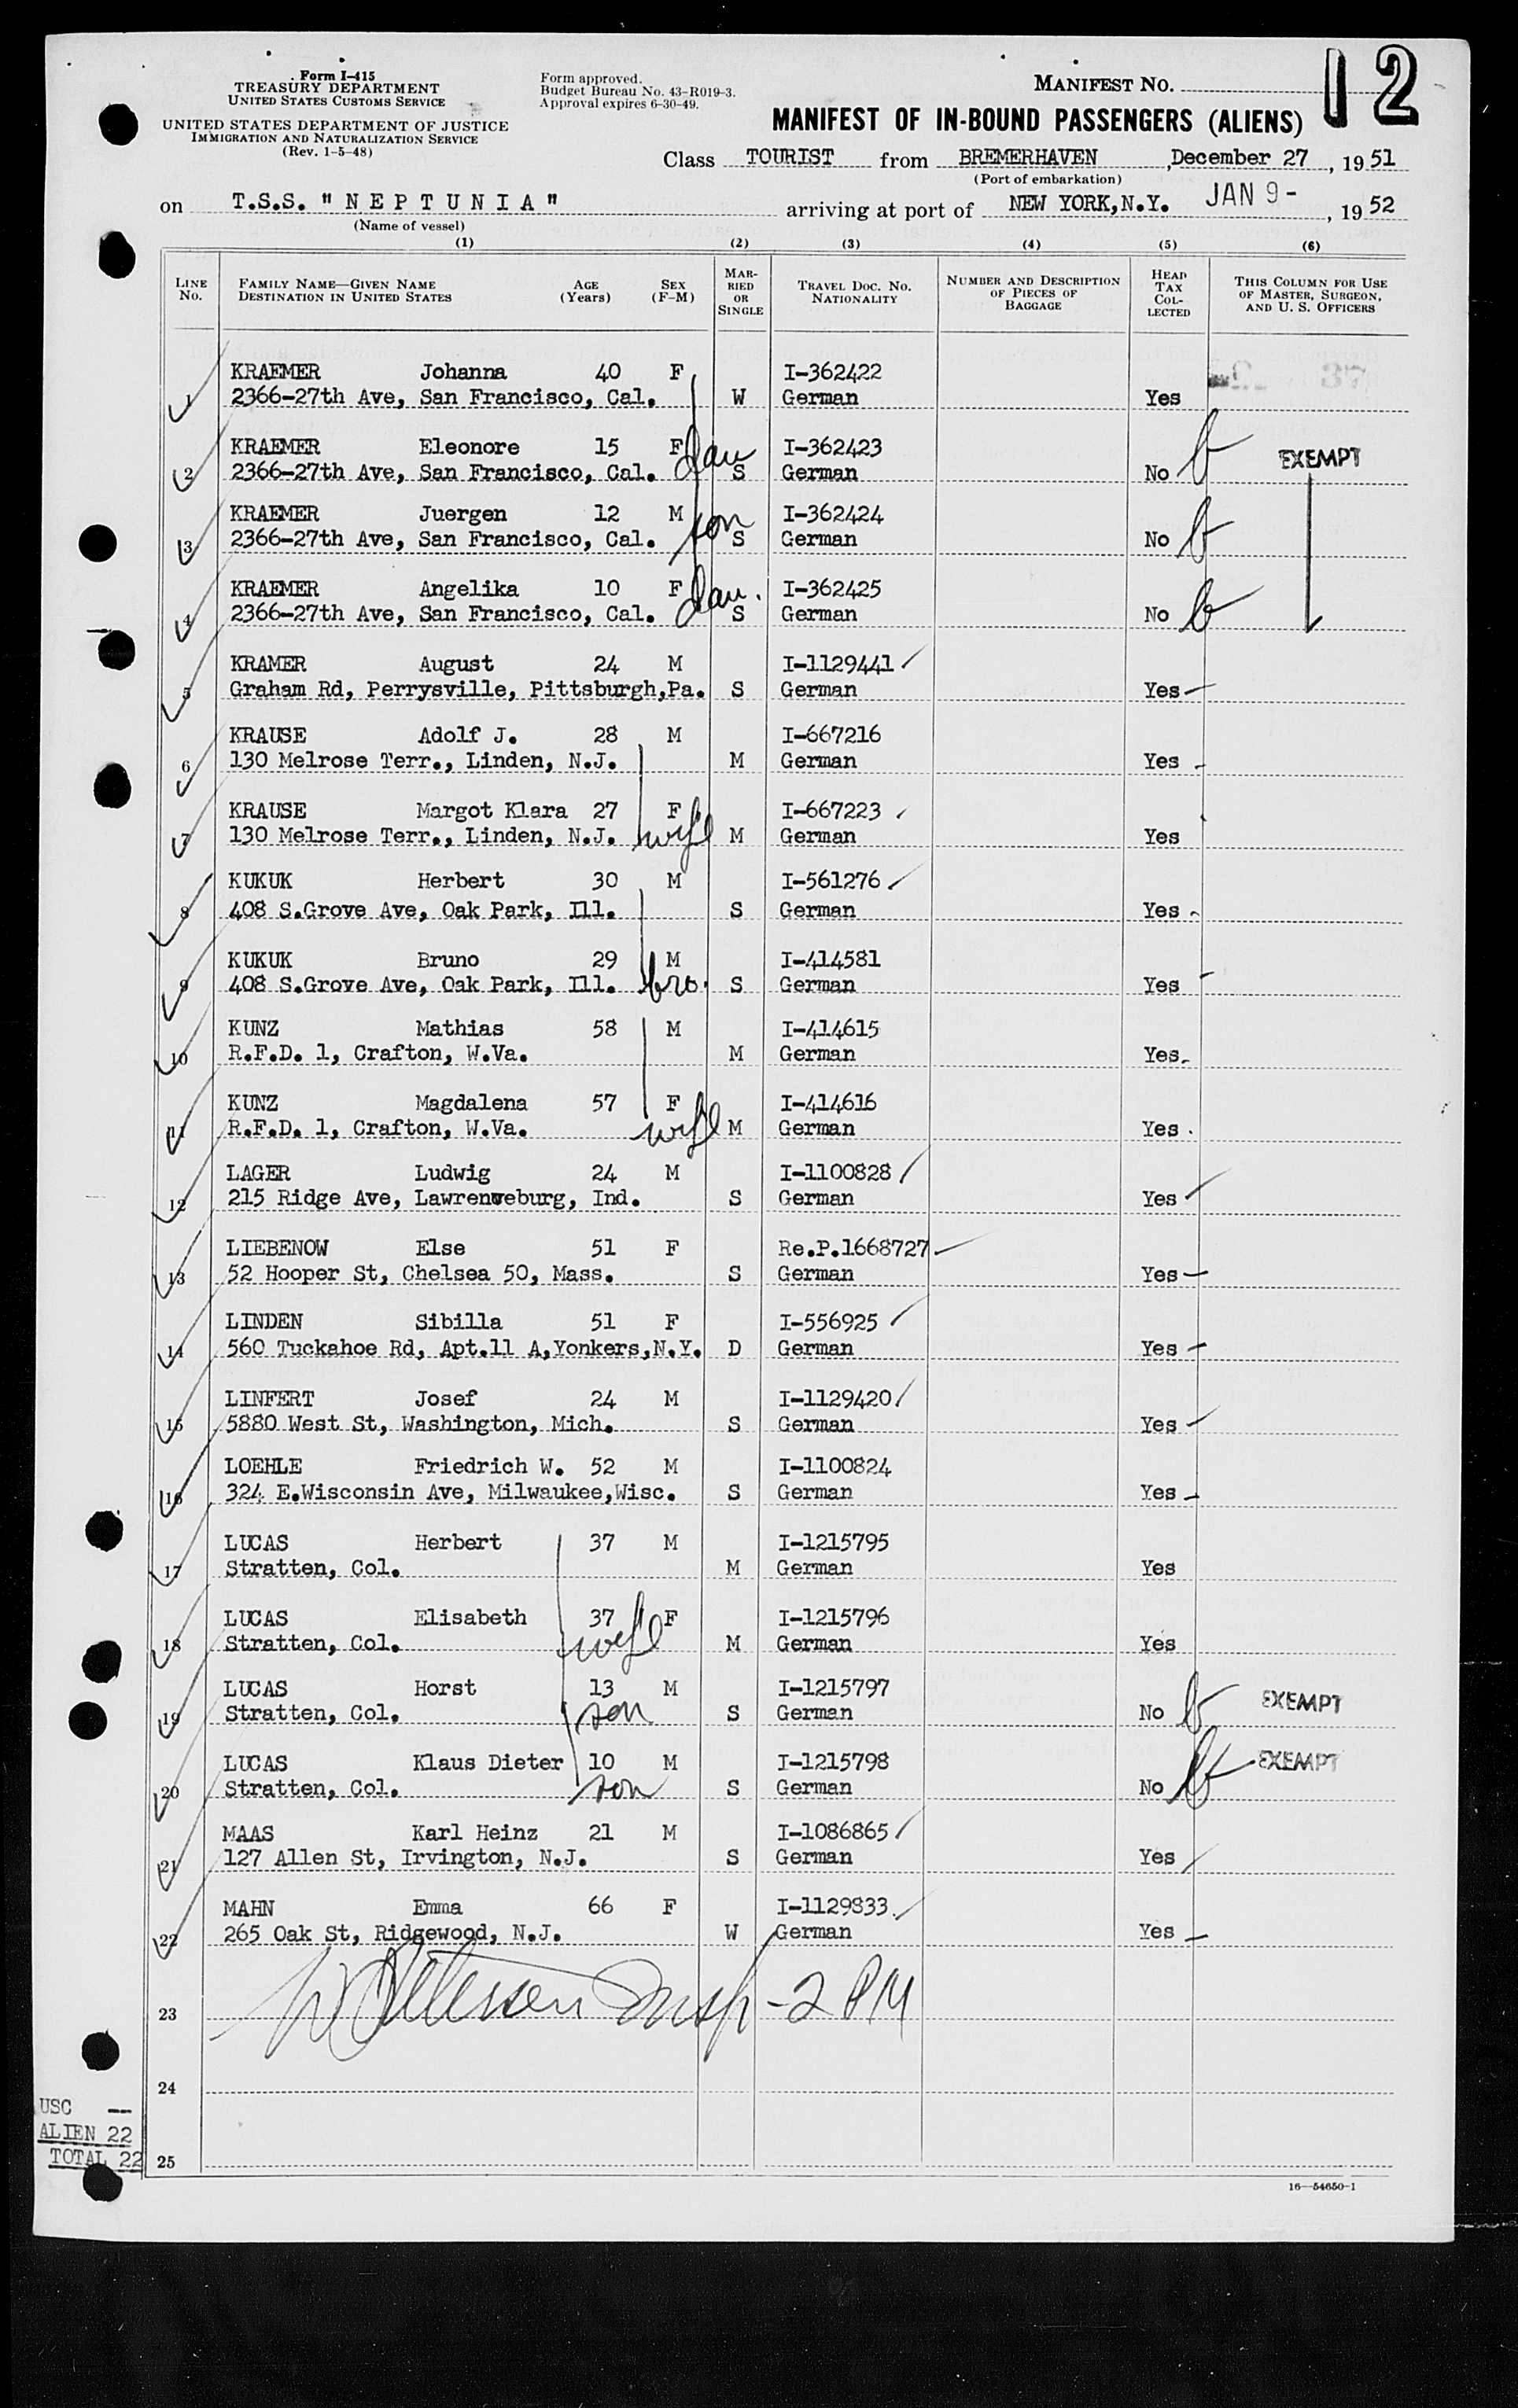 12
Form I-415
TREASURY DEPARTMENT
UNITED STATES CUSTOMS SERVICE
UNITED STATES DEPARTMENT OF JUSTICE
IMMIGRATION AND NATURALIZATION SERVICE
(Rev. 1-5-48)
Form approved.
Budget Bureau No. 43-R019-3.
Approval expires 6-30-49.
MANIFEST NO.
MANIFEST OF IN-BOUND PASSENGERS (ALIENS)
Class TOURIST from BREMERHAVEN, December 27, 1951
(Port of embarkation)
on T.S.S. "NEPTUNIA" arriving at port of NEW YORK, N.Y. JAN 9-, 1952
(Name of vessel)
(1) (2) (3) (4) (5) (6)
LINE No. FAMILY NAME—GIVEN NAME DESTINATION IN UNITED STATES AGE (Years) SEX (F-M) MARRIED OR SINGLE TRAVEL DOC. NO. NATIONALITY NUMBER AND DESCRIPTION OF PIECES OF BAGGAGE HEAD TAX COLLECTED THIS COLUMN FOR USE OF MASTER, SURGEON, AND U. S. OFFICERS
KRAEMER Johanna 40 F I-362422
1 2366-27th Ave, San Francisco, Cal. W German Yes
KRAEMER Eleonore 15 F dau I-362423 EXEMPT
2 2366-27th Ave, San Francisco, Cal. S German No
KRAEMER Juergen 12 M son I-362424
3 2366-27th Ave, San Francisco, Cal. S German No
KRAEMER Angelika 10 F dau. I-362425
4 2366-27th Ave, San Francisco, Cal. S German No
KRAMER August 24 M I-1129441
5 Graham Rd, Perrysville, Pittsburgh,Pa. S German Yes
KRAUSE Adolf J. 28 M I-667216
6 130 Melrose Terr., Linden, N.J. M German Yes
KRAUSE Margot Klara 27 F I-667223
7 130 Melrose Terr., Linden, N.J. wife M German Yes
KUKUK Herbert 30 M I-561276
8 408 S.Grove Ave, Oak Park, Ill. S German Yes
KUKUK Bruno 29 M I-414581
9 408 S.Grove Ave, Oak Park, Ill. bro. S German Yes
KUNZ Mathias 58 M I-414615
10 R.F.D. 1, Crafton, W.Va. M German Yes
KUNZ Magdalena 57 F I-414616
11 R.F.D. 1, Crafton, W.Va. wife M German Yes
LAGER Ludwig 24 M I-1100828
12 215 Ridge Ave, Lawrenweburg, Ind. S German Yes
LIEBENOW Else 51 F Re.P.1668727
13 52 Hooper St, Chelsea 50, Mass. S German Yes
LINDEN Sibilla 51 F I-556925
14 560 Tuckahoe Rd, Apt.11 A,Yonkers,N.Y. D German Yes
LINFERT Josef 24 M I-1129420
15 5880 West St, Washington, Mich. S German Yes
LOEHLE Friedrich W. 52 M I-1100824
16 324 E.Wisconsin Ave, Milwaukee,Wisc. S German Yes
LUCAS Herbert 37 M I-1215795
17 Stratten, Col. M German Yes
LUCAS Elisabeth 37 F I-1215796
18 Stratten, Col. wife M German Yes
LUCAS Horst 13 M I-1215797 EXEMPT
19 Stratten, Col. son S German No
LUCAS Klaus Dieter 10 M I-1215798 EXEMPT
20 Stratten, Col. son S German No
MAAS Karl Heinz 21 M I-1086865
21 127 Allen St, Irvington, N.J. S German Yes
MAHN Emma 66 F I-1129833
22 265 Oak St, Ridgewood, N.J. W German Yes
23 Insp - 2 PM
24
25
USC --
ALIEN 22
TOTAL 22
16—54650-1